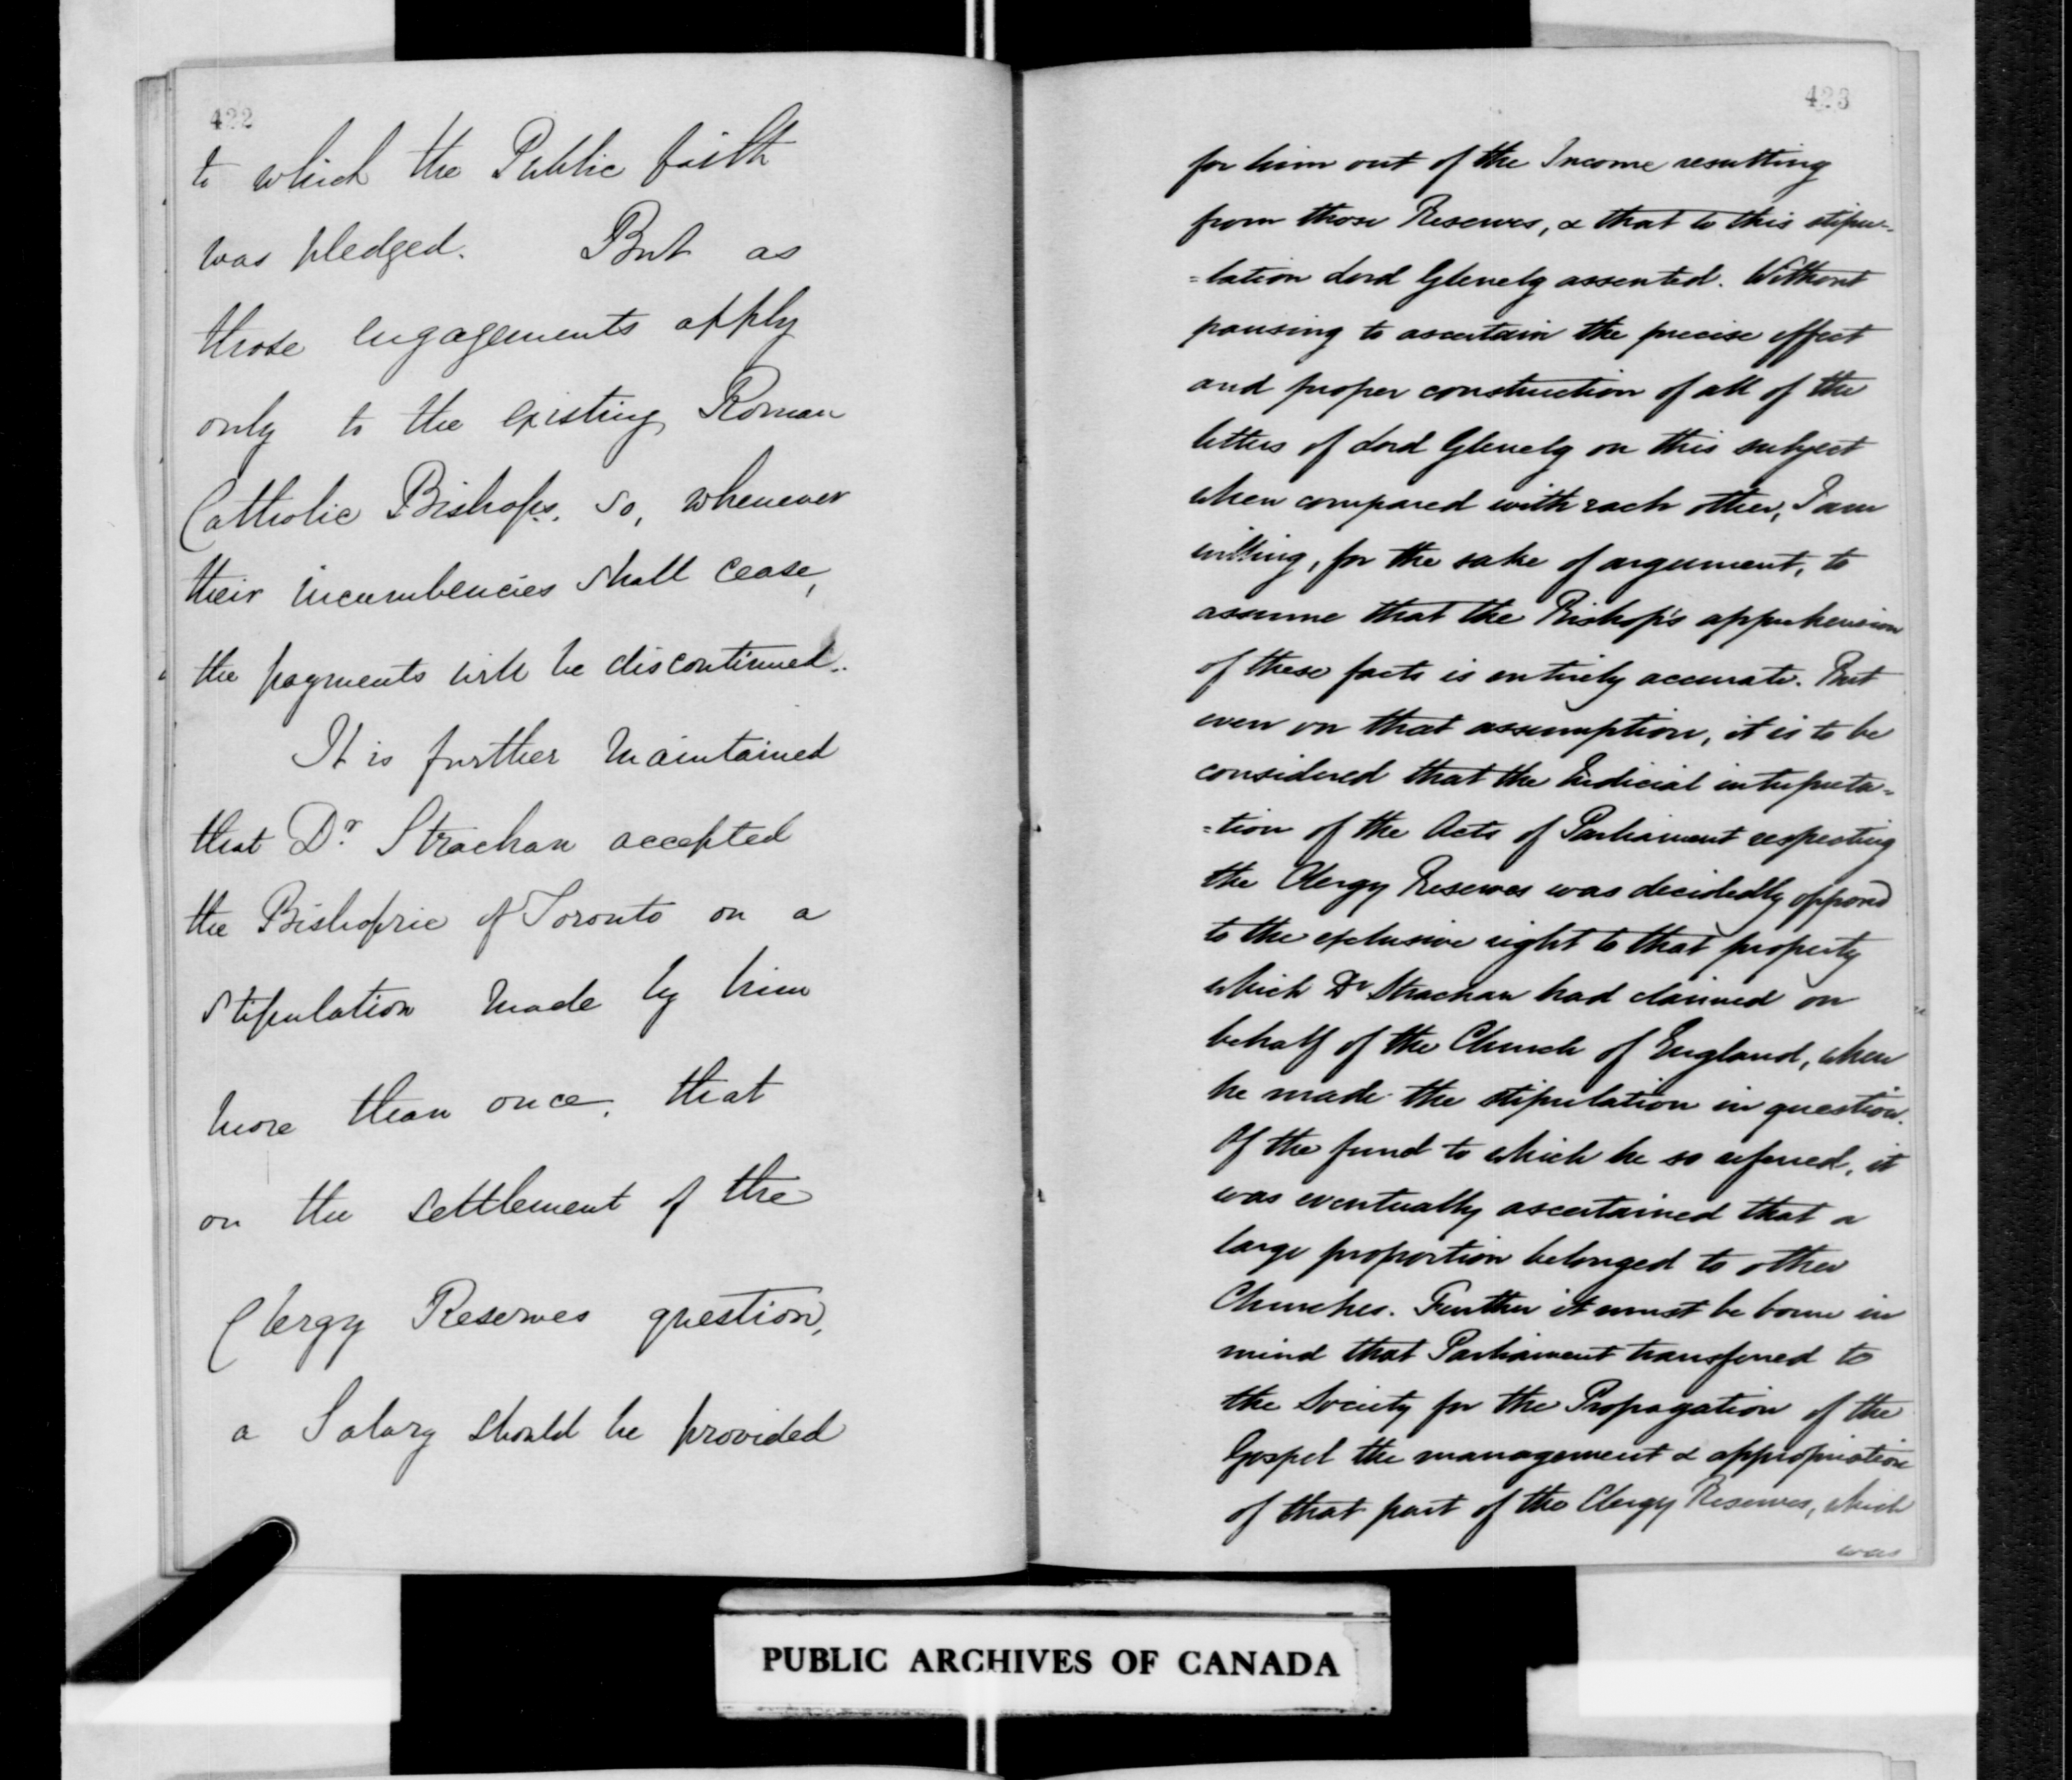 422
to which the Public faith
was pledged. But as
those engagements apply
only to the existing Roman
Catholic Bishops, so, whenever
their incumbencies shall cease,
the payments will be discontinued.
It is further maintained
that Dr Strachan accepted
the Bishopric of Toronto on a
stipulation made by him
more than once, that
on the settlement of the
Clergy Reserves question,
a Salary should be provided
423
for him out of the Income resulting
from those Reserves, & that to this stipu-
=lation Lord Glenelg assented. Without
pausing to ascertain the precise effect
and proper construction of all of the
letters of Lord Glenelg on this subject
when compared with each other, I am
willing, for the sake of argument, to
assume that the Bishop's apprehension
of these facts is entirely accurate. But
even on that assumption, it is to be
considered that the Judicial interpreta=
=tion of the Acts of Parliament respecting
the Clergy Reserves was decidedly opposed
to the exclusive right to that property
which Dr Strachan had claimed on
behalf of the Church of England, when
he made the stipulation in question.
Of the fund to which he so referred, it
was eventually ascertained that a
large proportion belonged to other
Churches. Further it must be borne in
mind that Parliament transferred to
the Society for the Propagation of the
Gospel the management & appropriation
of that part of the Clergy Reserves, which
was
PUBLIC ARCHIVES OF CANADA